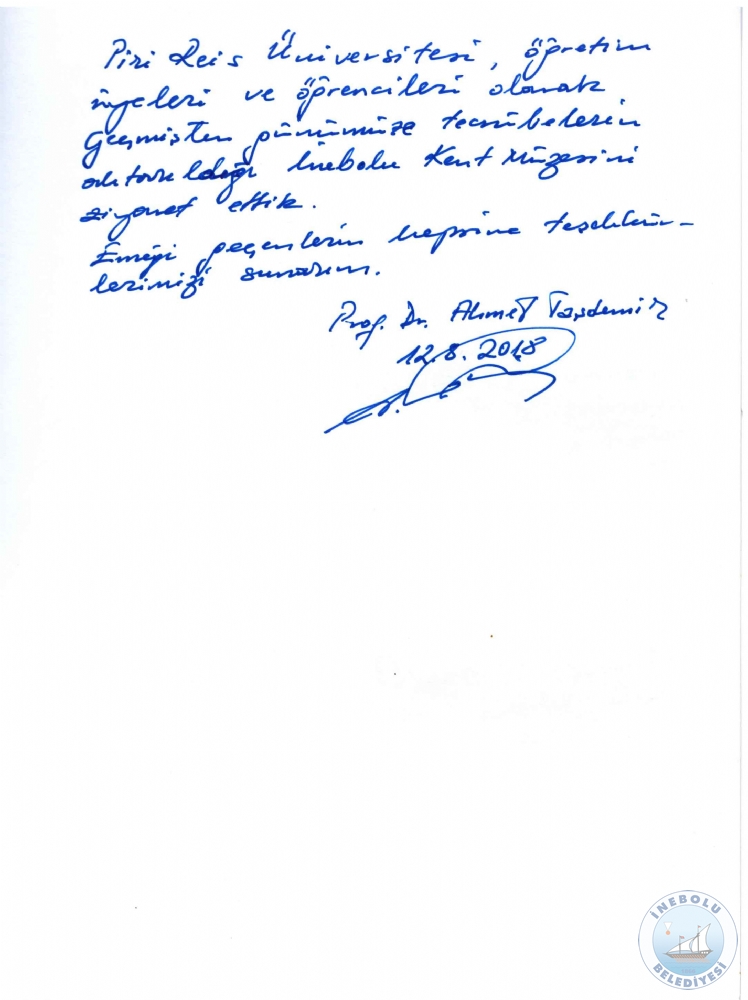 Piri Reis Üniversitesi, öğretim
üyeleri ve öğrencileri olarak
Geçmişten günümüze tecrübelerin
aktarıldığı İnebolu Kent Müzesini
ziyaret ettik.
Emeği geçenlerin hepsine teşekkür-
lerimizi sunarım.
Prof. Dr. Ahmet Taşdemir
12.8.2018
İNEBOLU
BELEDİYESİ